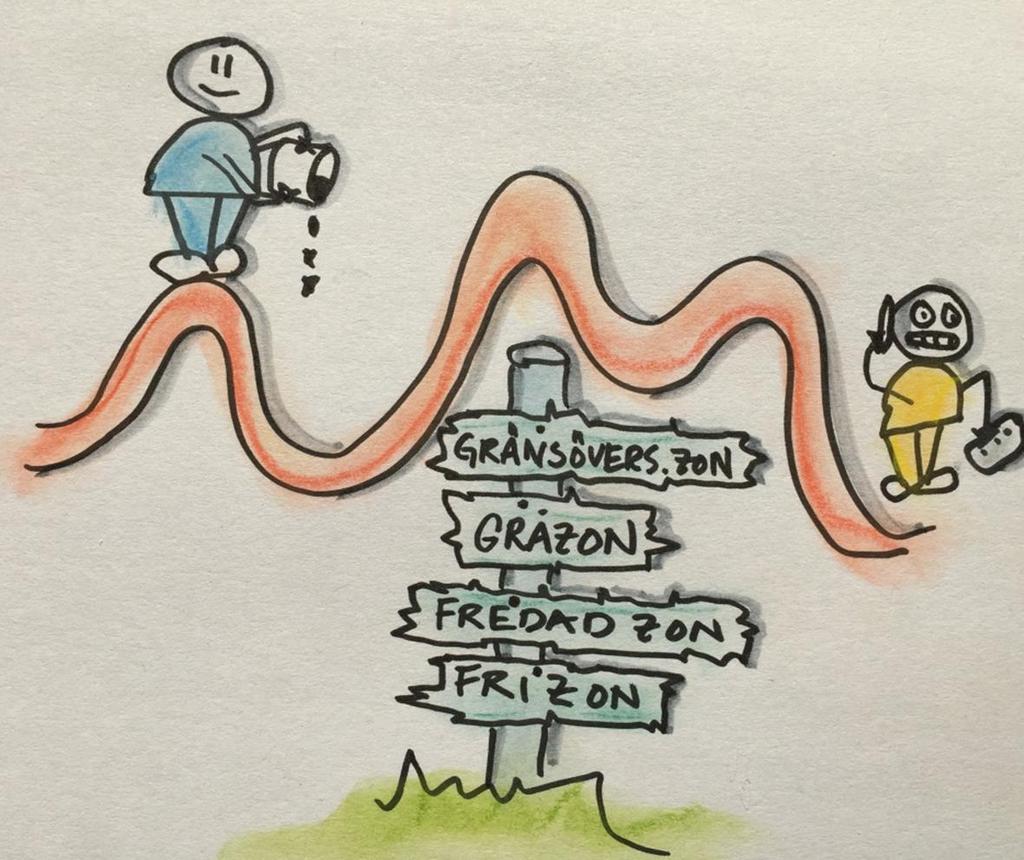 GRÄNSÖVERS.ZON
GRÅZON
FREDAD ZON
FRIZON